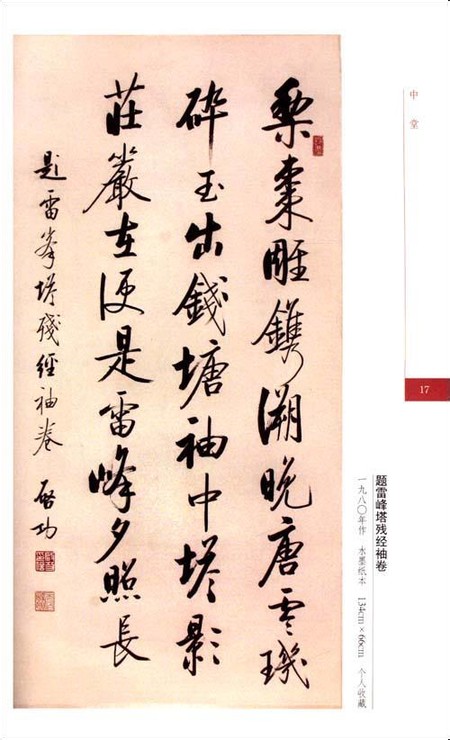 中堂
17
题雷峰塔残经袖卷
一九八〇年作 水墨纸本 134cm×66cm 个人收藏
棃棗雕鐫溯晚唐零璣
碎玉出錢塘袖中塔影
莊嚴在便是雷峰夕照長
題雷峯塔殘經袖卷 啓功